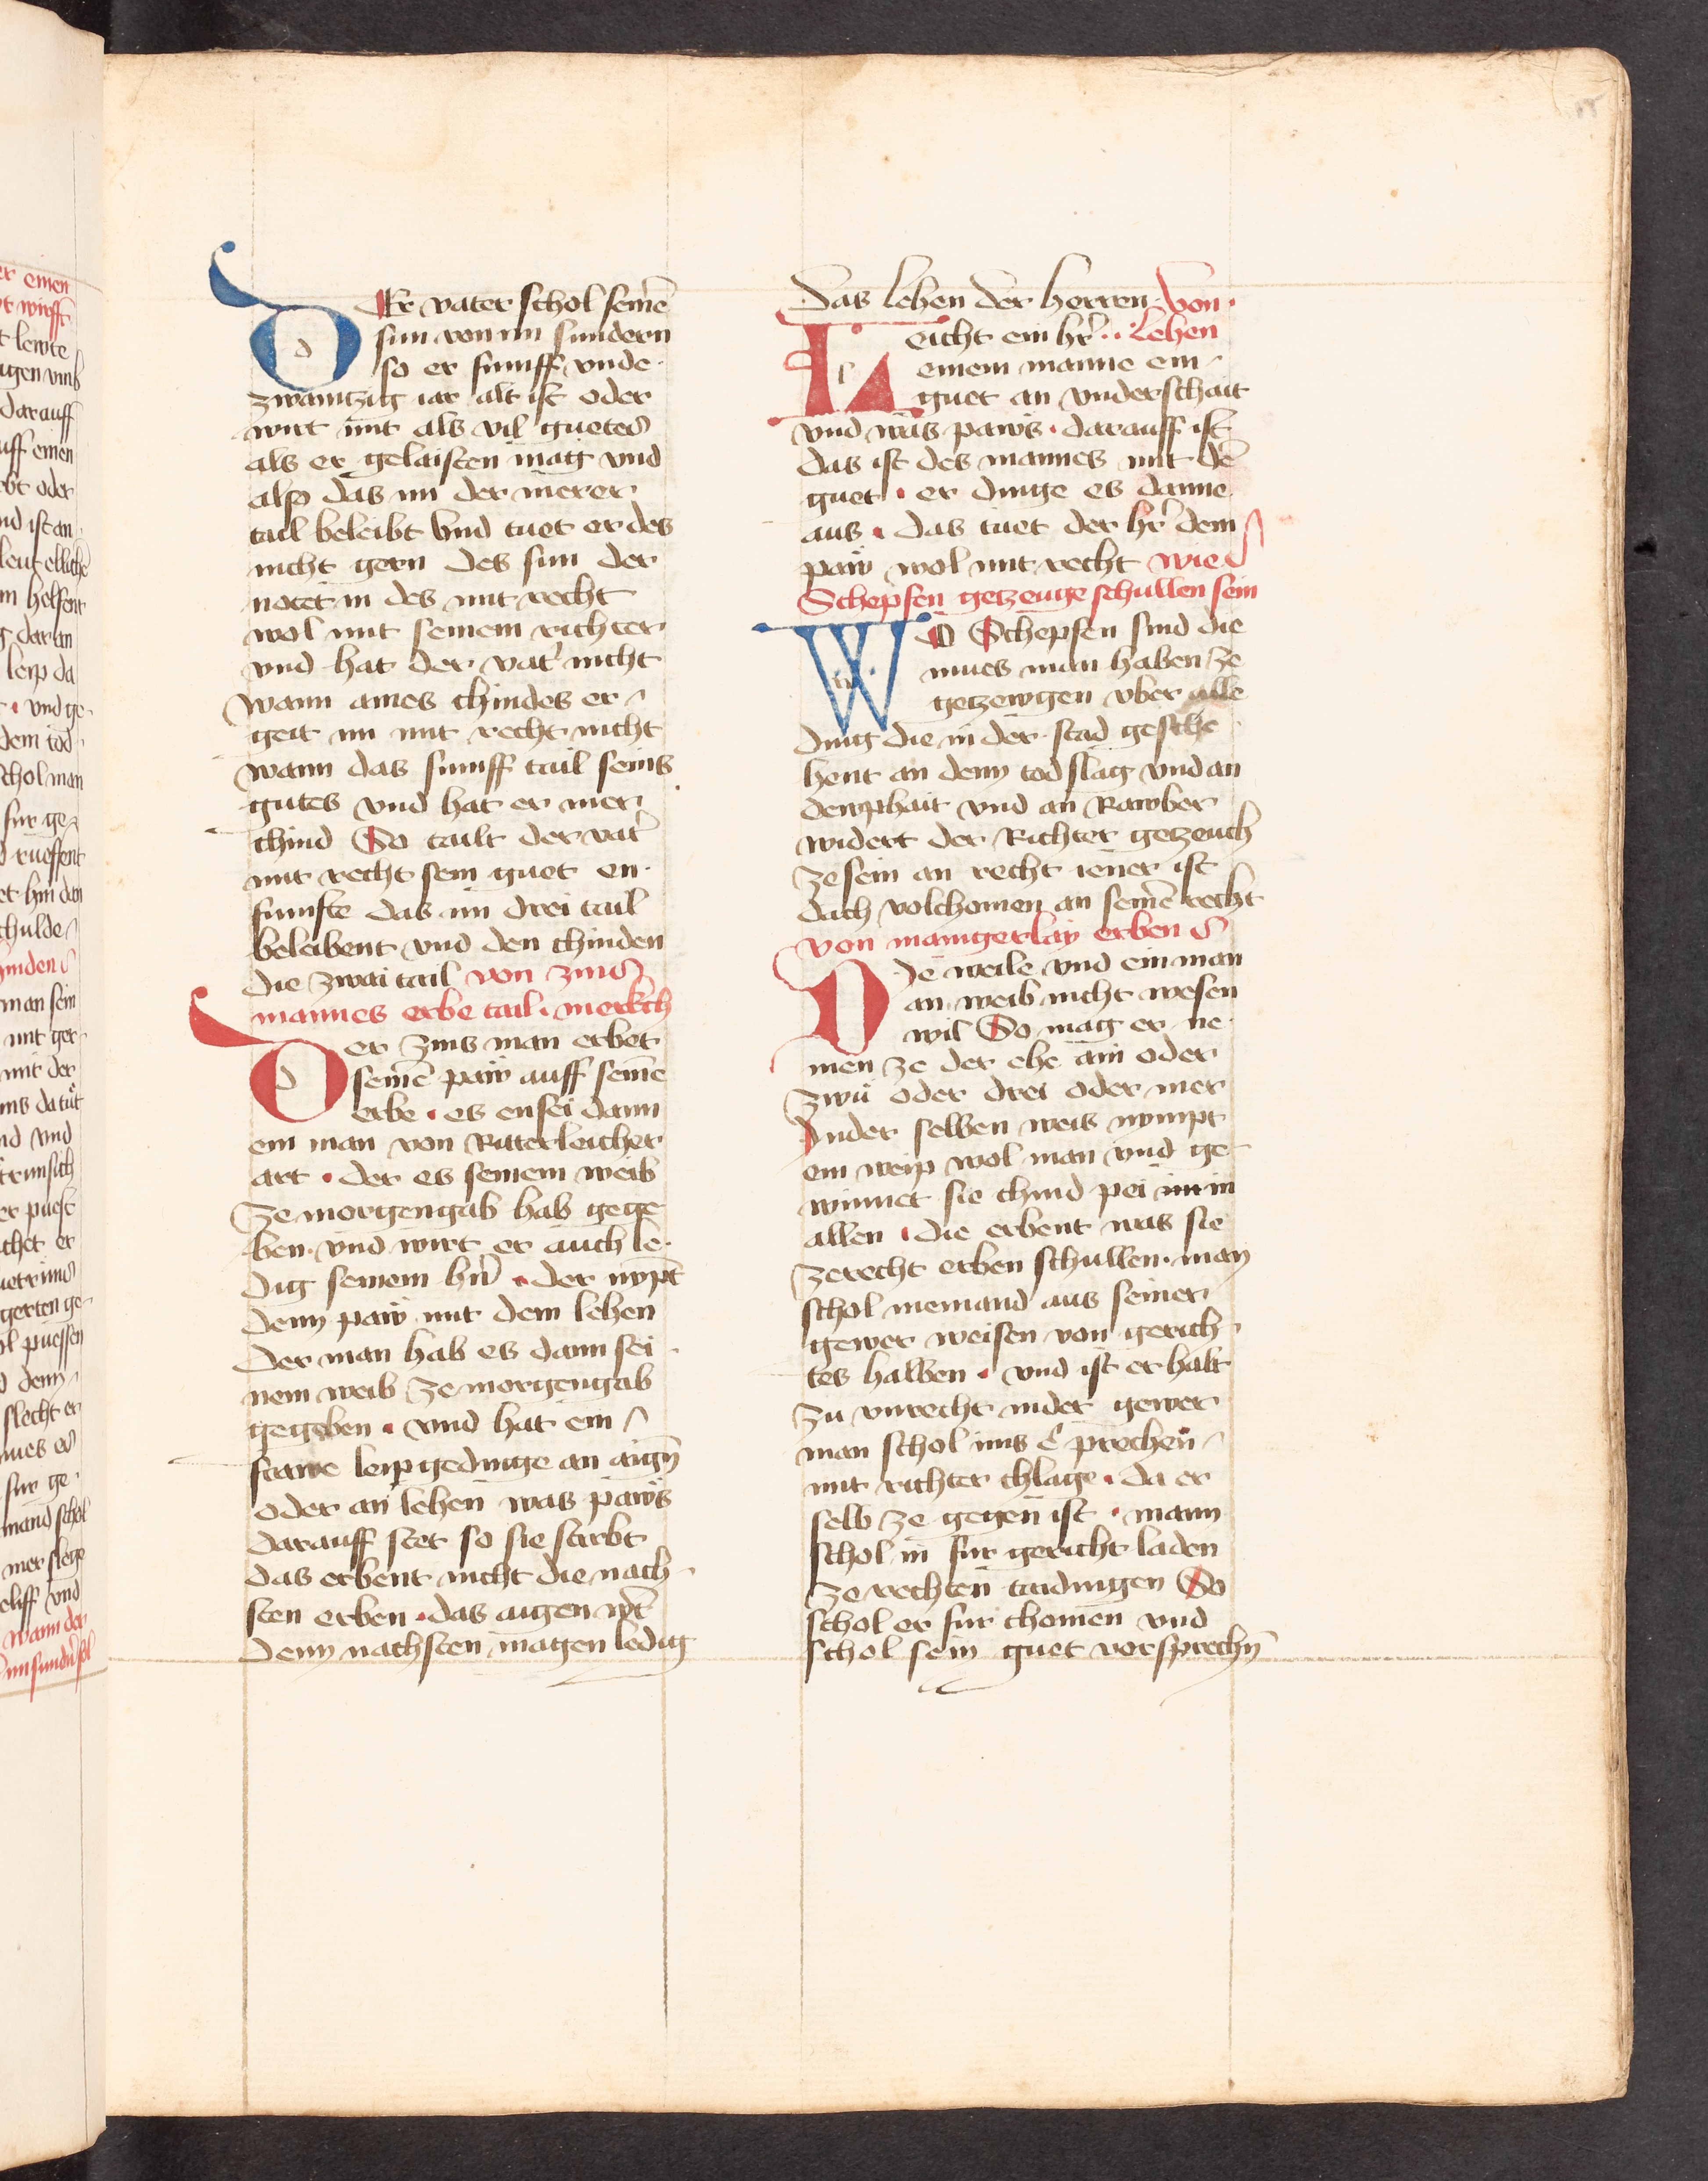 DEr vater schol seinē
sun von im sundern
so er funiff vnde
zwaintzig iar alt ist oder
wirt mit als vil guetes
als er gelaisten mag vnd
also das im der merer
tail beleibt vnd tuet er des
nicht gern des sun der
notet in des mit recht
wol mit seinem richter
vnd hat der vat̉ nicht
wann aines chindes er
geit im mit recht nicht
wann das funiff tail seins
gutes vnd hat er mer
chind So tailt der vat̉
mit recht sein guet en
funfte das im drei tail
beleibent vnd den chinden
die zwai tail von zins
mannes erbe tail · merkch
Der zins man erbet
seinē paẅ auff seinē
erbe · es ensei dann
ein man von Ritterleicher
art · der es seinem weib
ze morgengab hab gege
ben · vnd wirt er auch le
dig seinem hñ · der nỳpt
denn paẅ mit dem lehen
Der man hab es dann sei
nem weib ze morgengab
gegeben · vnd hat ein
frawe leipgedinge an aigñ
oder an lehen was paẅs
darauff stet so sie stirbt
das erbent nicht die nach
sten erben · das aigen wt̉
denn nachsten magen ledig
Das lehen der herren · von ·
Leicht ein hr̉ · · Lehen
einem manne ein
guet an vnderschait
vnd was paẅs · darauff ist
das ist des mannes mit dē
guet · er dinge es danne
aus · das tuet der hr̉ dem
paẅ wol mit recht wie
Schepfen getzeuge schullen sein
WO Schepfen sind die
mues man haben ze
getzewgen vber alle
ding die in der stad gesche
hent an denn tod slag vnd an
dewphait vnd an Rawber
widert der Richter getzeuch
ze sein an recht iener ist
dach volchomen an seinē recht
von manigerlay erben
Die weile vnd ein man
an weib nicht wesen
wil So mag er ne
men ze der ehe ain oder
zwu oder drei oder mer
Inder selben weis nympt
ein weip wol man vnd ge
winnet sie chind pei im in
allen · die erbent was sie
zerecht erben schullen · man
schol niemand aus seiner
gewer weisen von gerich
tes halben · vnd ist er halt
zu vnrecht inder gewer
man schol ims e prechen
mit richter chlage · da er
selb ze gegen ist · mann
schol in fur gericht laden
ze rechten taidingen So
schol er fur chomen vnd
schol sein guet vorsprechñ